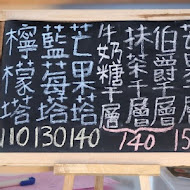 檸檬塔
110
藍莓塔
130
芒果塔
140
牛奶糖千層
抹茶千層
伯爵千層
140